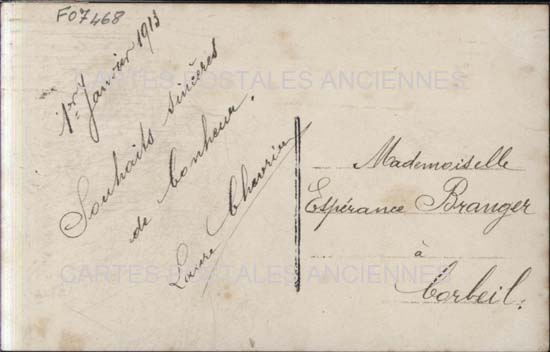 F07468
1er Janvier 1913
Souhaits sincères
de bonheur.
Chevrier
Mademoiselle
Espérance Branger
à
Corbeil.
CARTES POSTALES ANCIENNES
CARTES POSTALES ANCIENNES